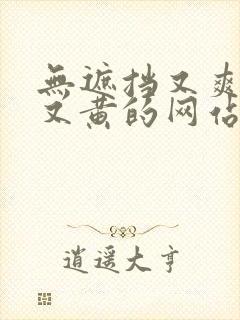 無遮挡又爽
又黄的网佔
逍遥大亨